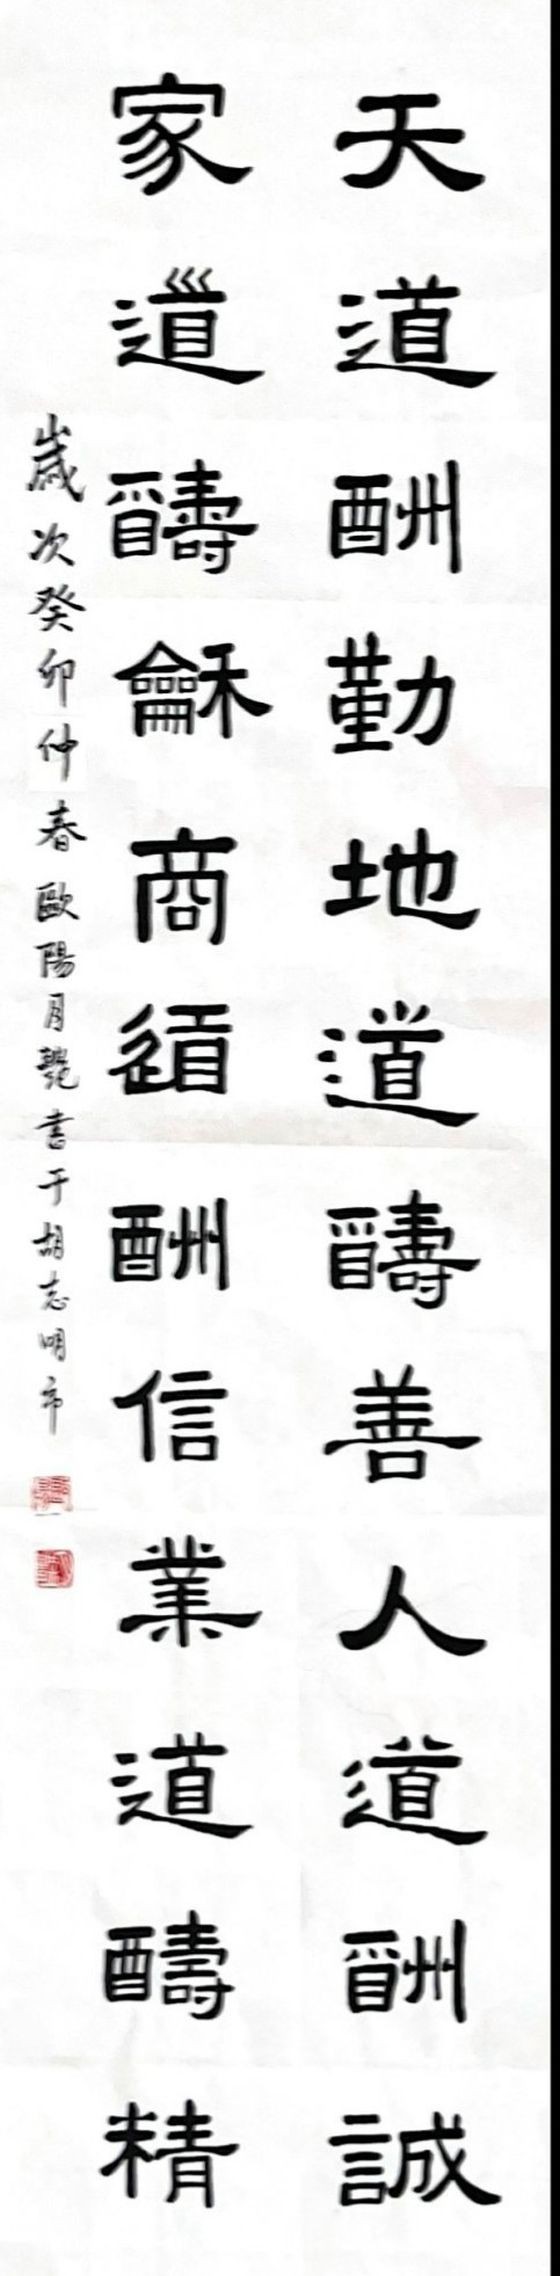 天道酬勤地道醻善人道酬誠
家道醻龢商道酬信業道醻精
歲次癸卯仲春歐陽月艷書于胡志明市